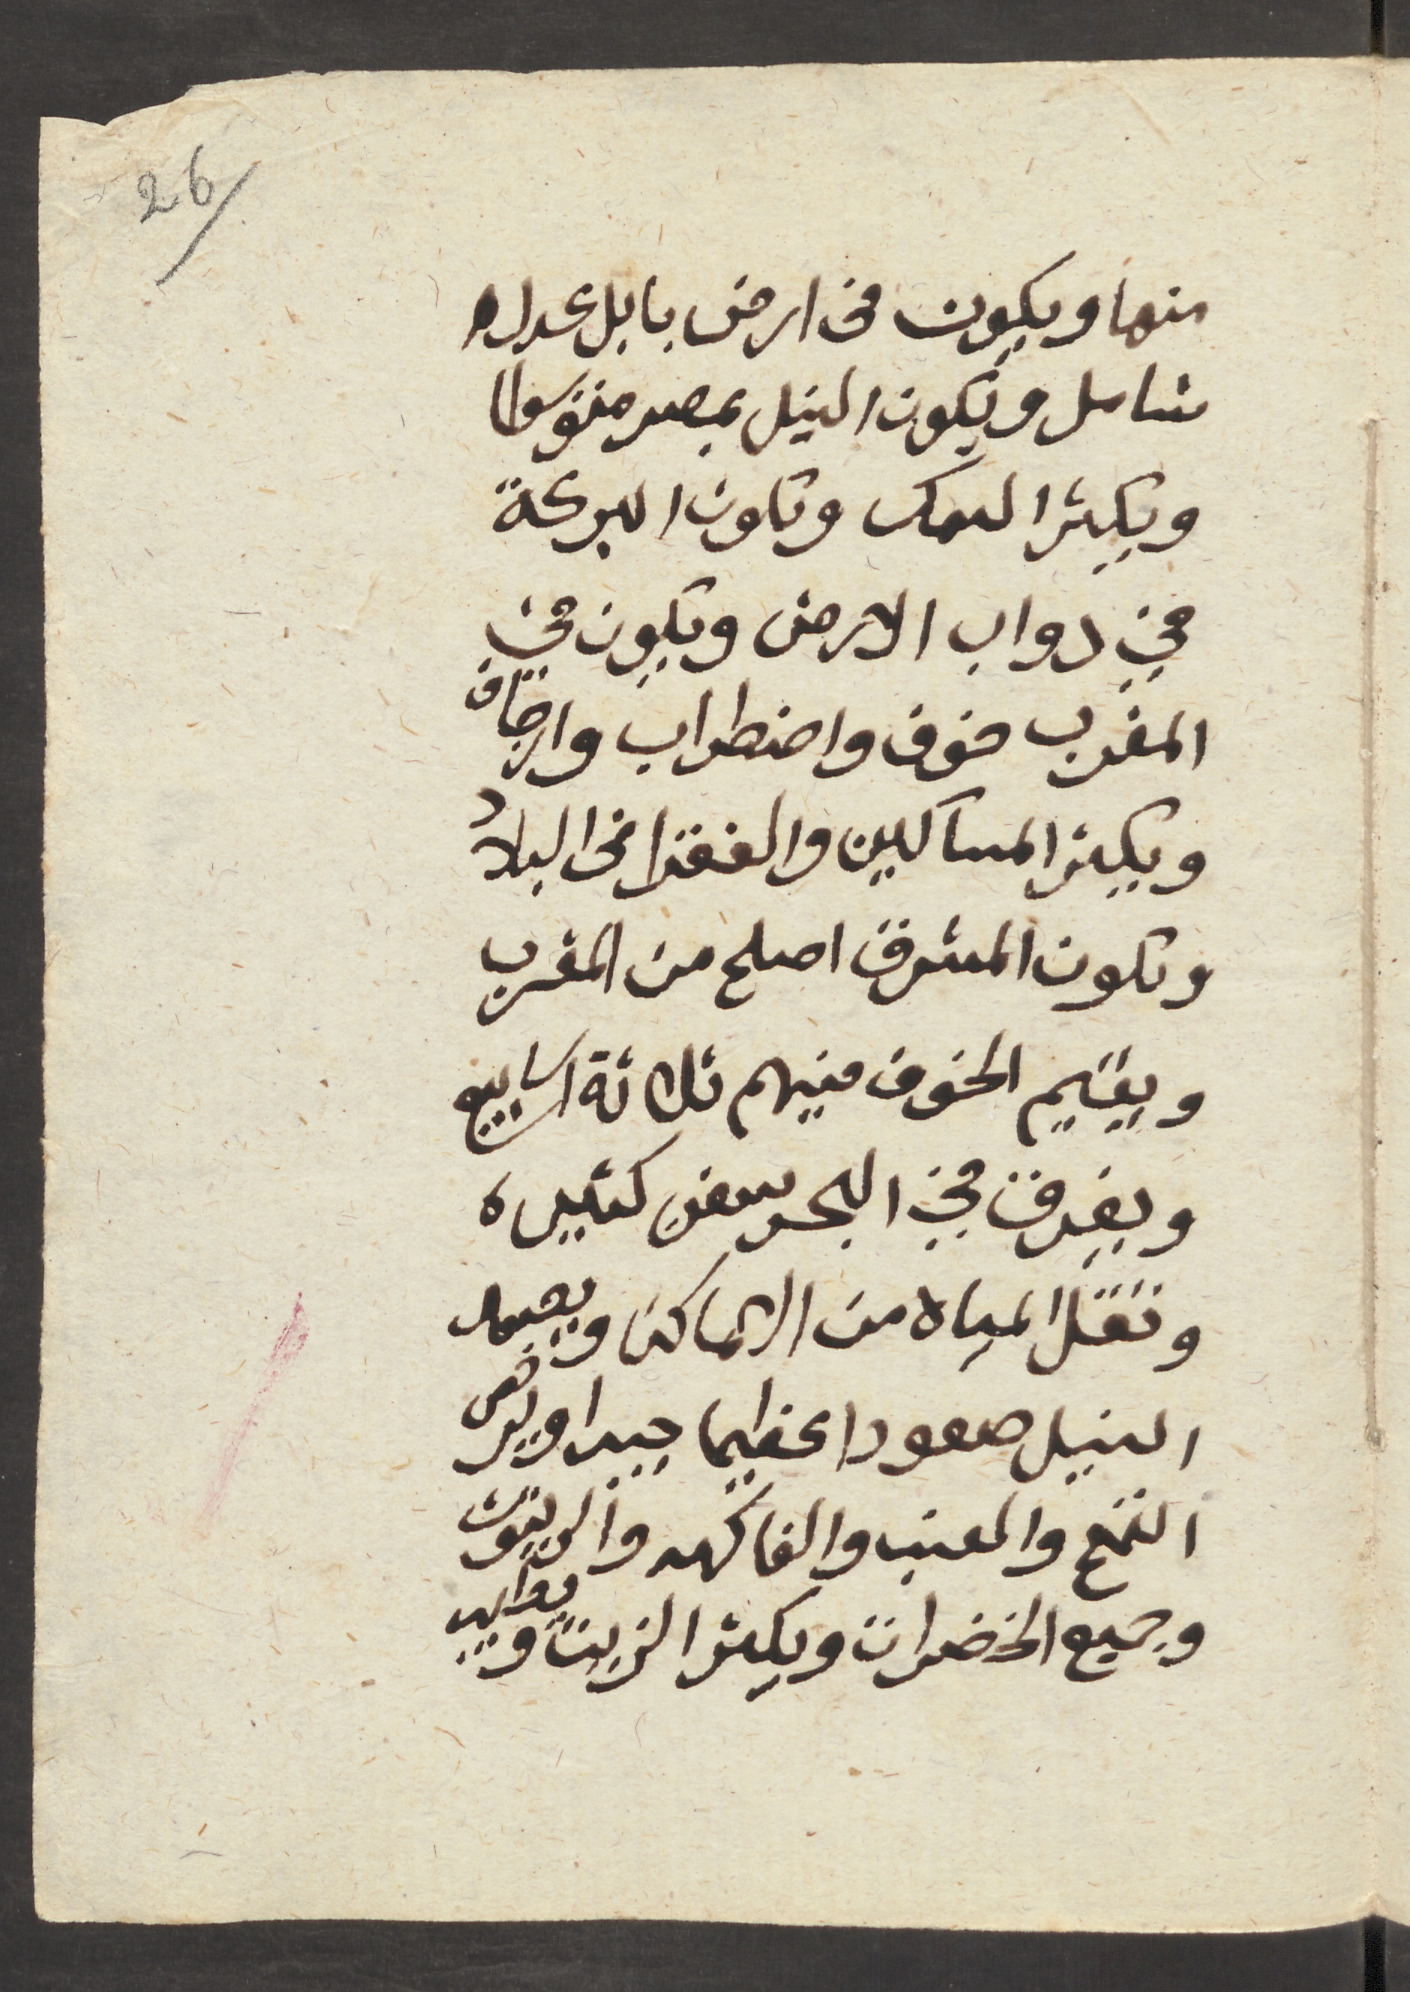 26
منها ويكون فى ارض بابل عدل
شامل ويكون النيل بمصر متوسطا
ويكثر السمك وتكون البركة
في دواب الارض ويكون في
المغرب خوف واضطراب وارجاف
ويكثر المساكين والفقرا فى البلاد
وتكون المشرق اصلح من المغرب
ويقيم الخوف فيهم ثلاثة اسابيع
ويغرق في البحر سفن كثيره
وتقل المياه من الاماكن ويصعد
النيل صعودا عظيما جيدا ويرخص
القمح والعنب والفاكهه والزيتون
وجميع الخضرات ويكثر الزيت